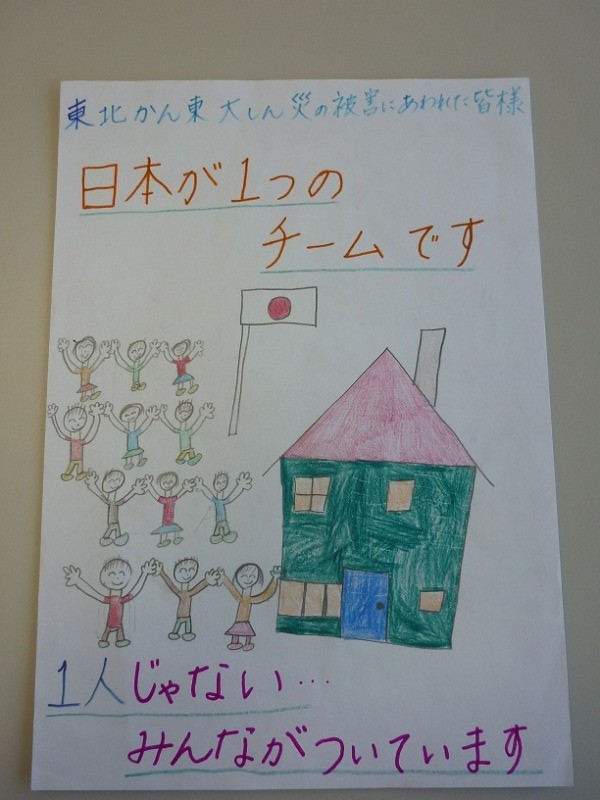 東北かん東大しん災の被害にあわれた皆様
日本が1つの
チームです
1人じゃない…
みんながついています